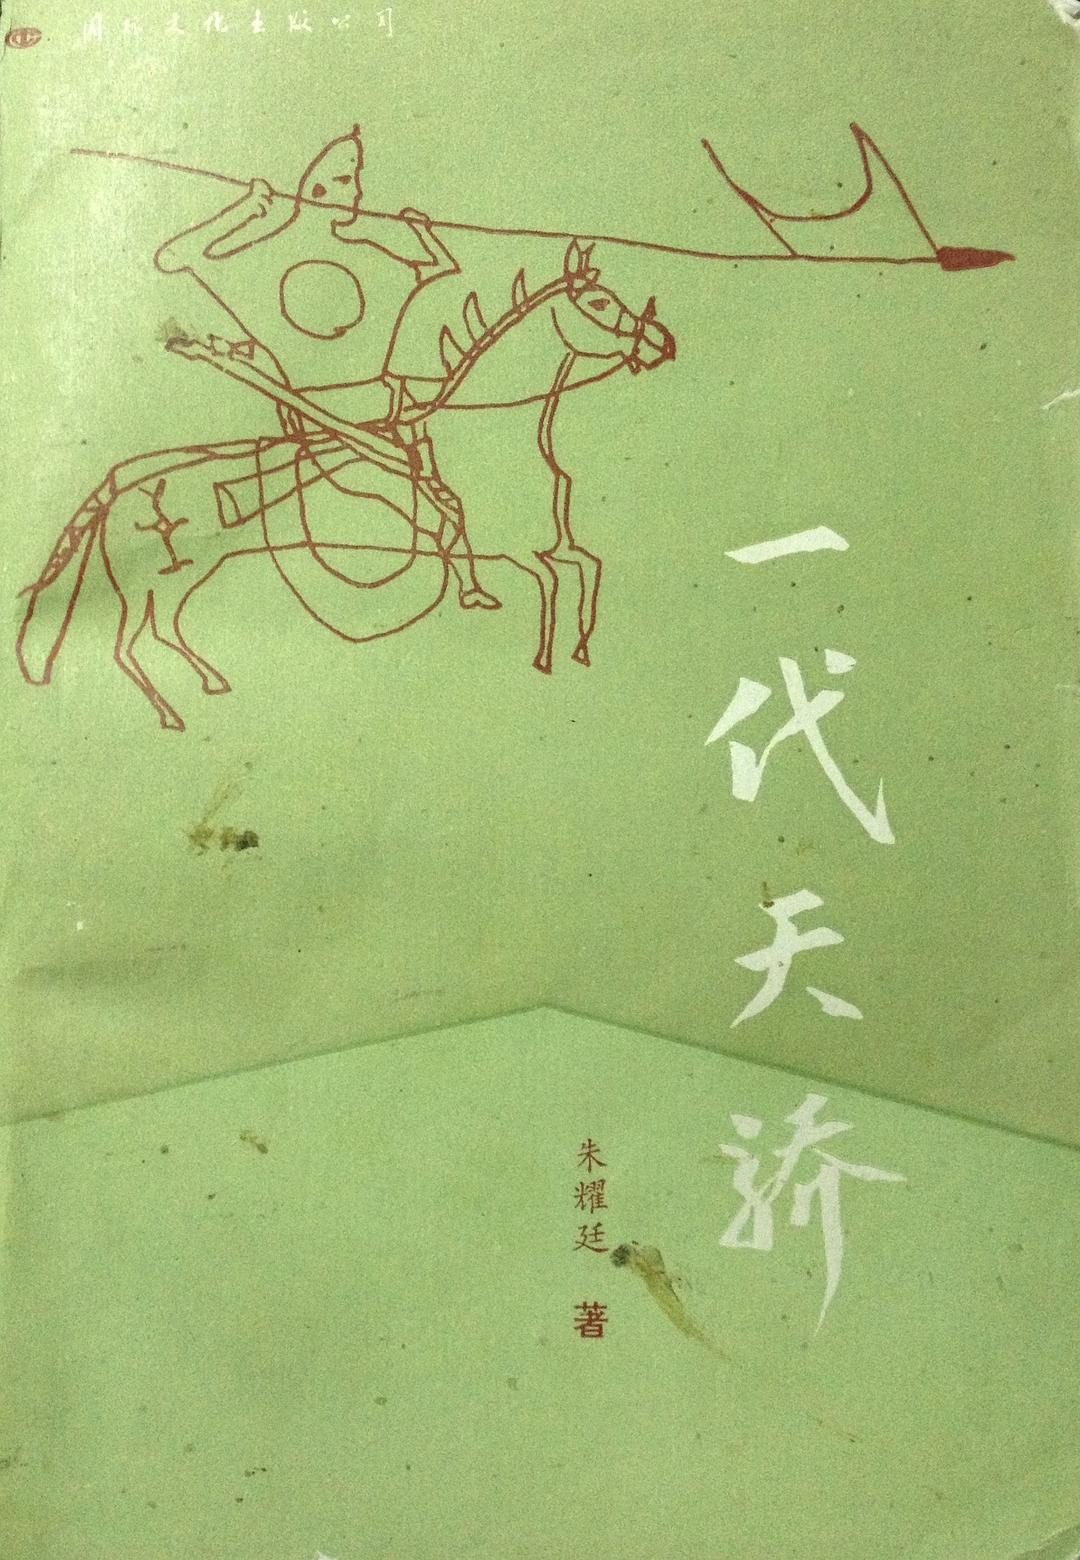 国际文化出版公司
一代天骄
朱耀廷 著